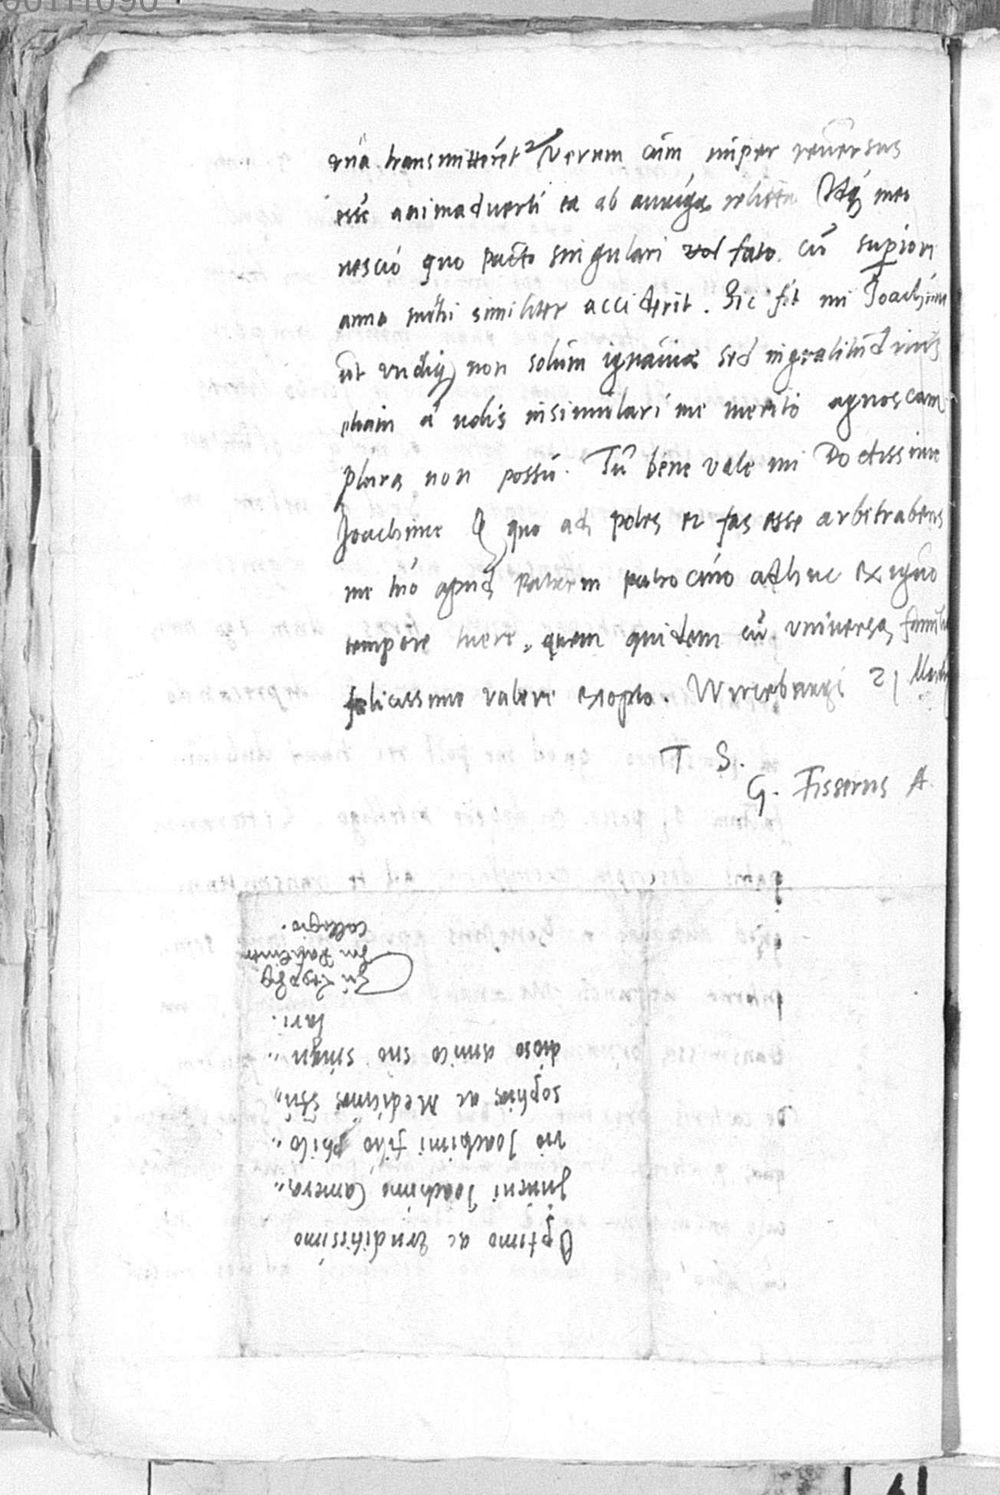 una transmitteret. Verum cum nuper reversus
esse animadverti ea ab auriga relicta. Utque meo
nescio quo pacto singulari vel fato cũ superiori
anno mihi similiter acciderit. Sic fit mi Joachime
ut undiq non solum ignaviae sed ingratitudinis
etiam á vobis insimulari me merito agnoscam
plura non possũ. Tu bene vale mi Doctissime
Joachime & quo ad potes et fas esse arbitraberis
me tuo apud patrem patrocinio adhuc exiguo
tempore tuere, quem quidem cũ universa familia
felicissime valere exopto. Wirebergi 21 Martii
T. S.
G. Fisserus A.
Optimo ac Eruditissimo
Juveni Joachimo Camera„
rio Joachimi filio philo„
sophiae ac Medicinae stu„
dioso amico suo singu„
lari.
Zu Leypzig
Im
Collegio.